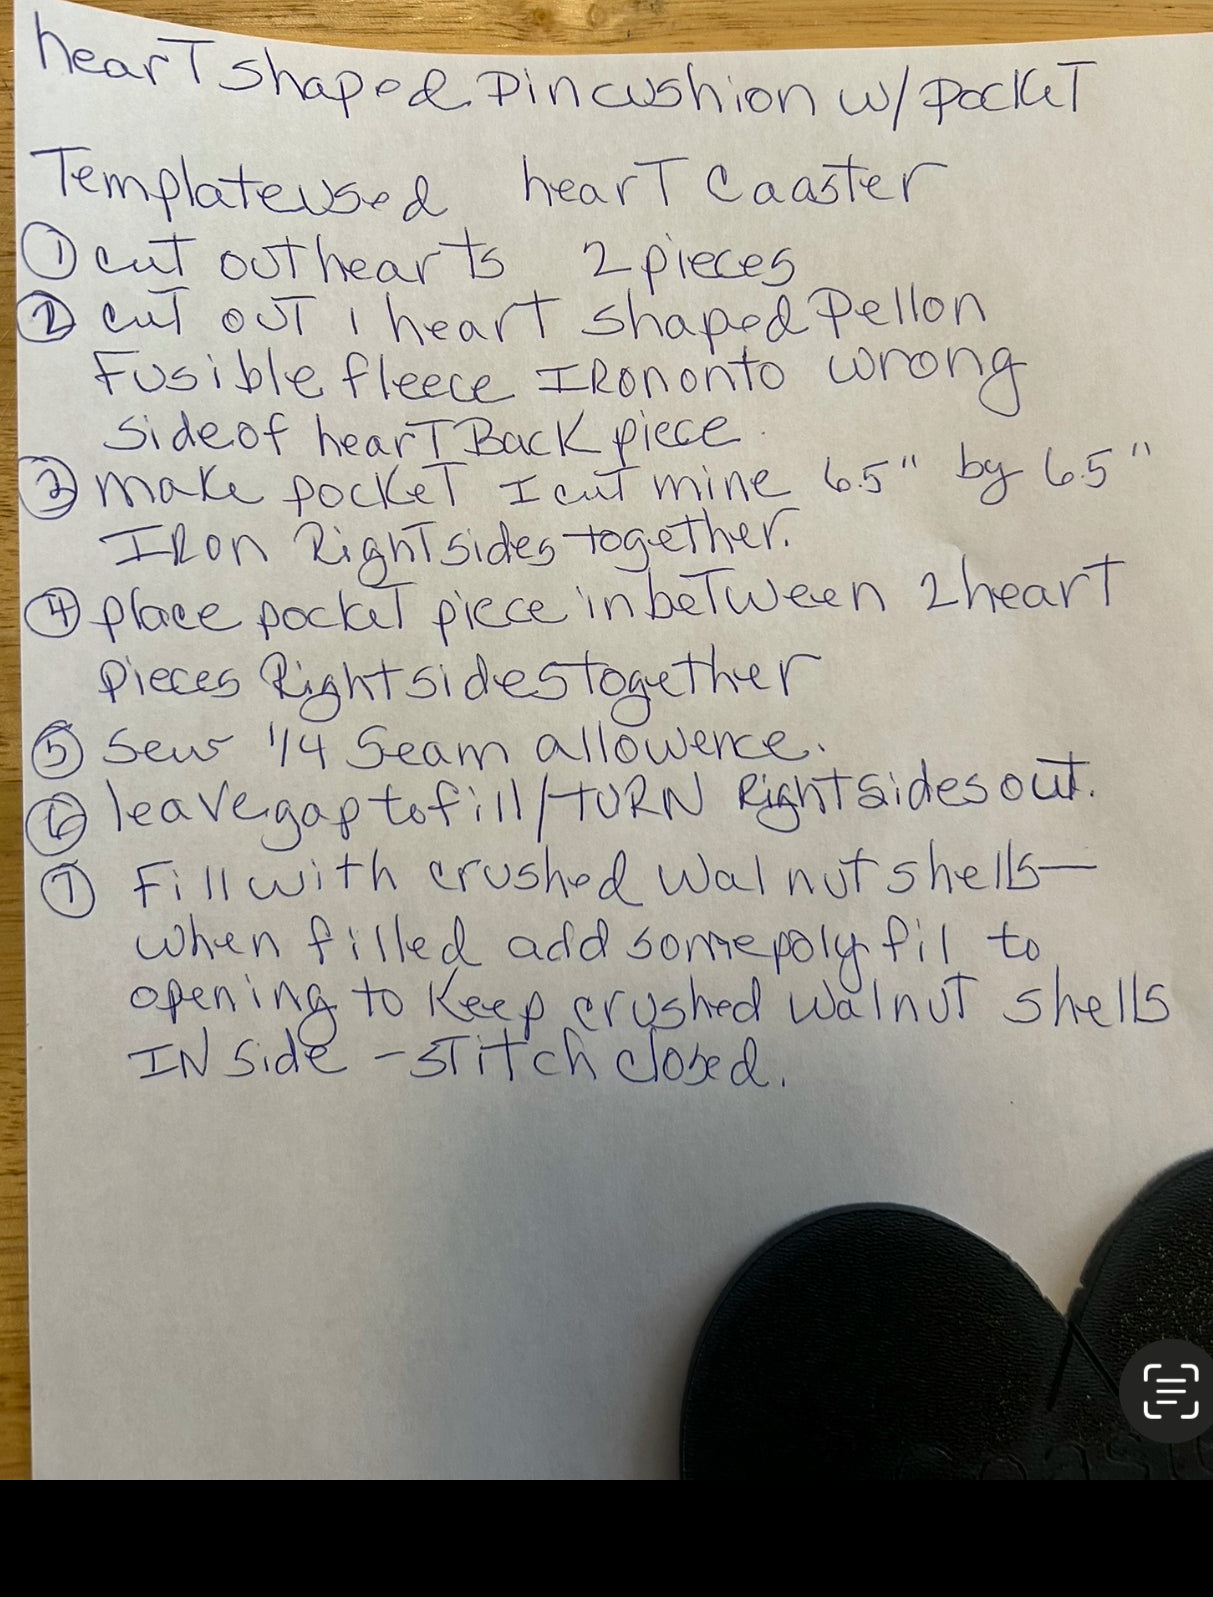 heart shaped pincushion w/ pocket
Template used heart Caaster
① cut out hearts 2 pieces
② cut out 1 heart shaped Pellon
Fusible fleece IRon onto wrong
side of heart Back piece.
③ make pocket I cut mine 6.5" by 6.5"
IRon Right sides together.
④ place pocket piece in between 2 heart
pieces Right sides together
⑤ Sew 1/4 Seam allowence.
⑥ leave gap to fill/TURN Right sides out.
⑦ Fill with crushed walnut shells—
when filled add some poly fil to
opening to Keep crushed walnut shells
INside - stitch closed.